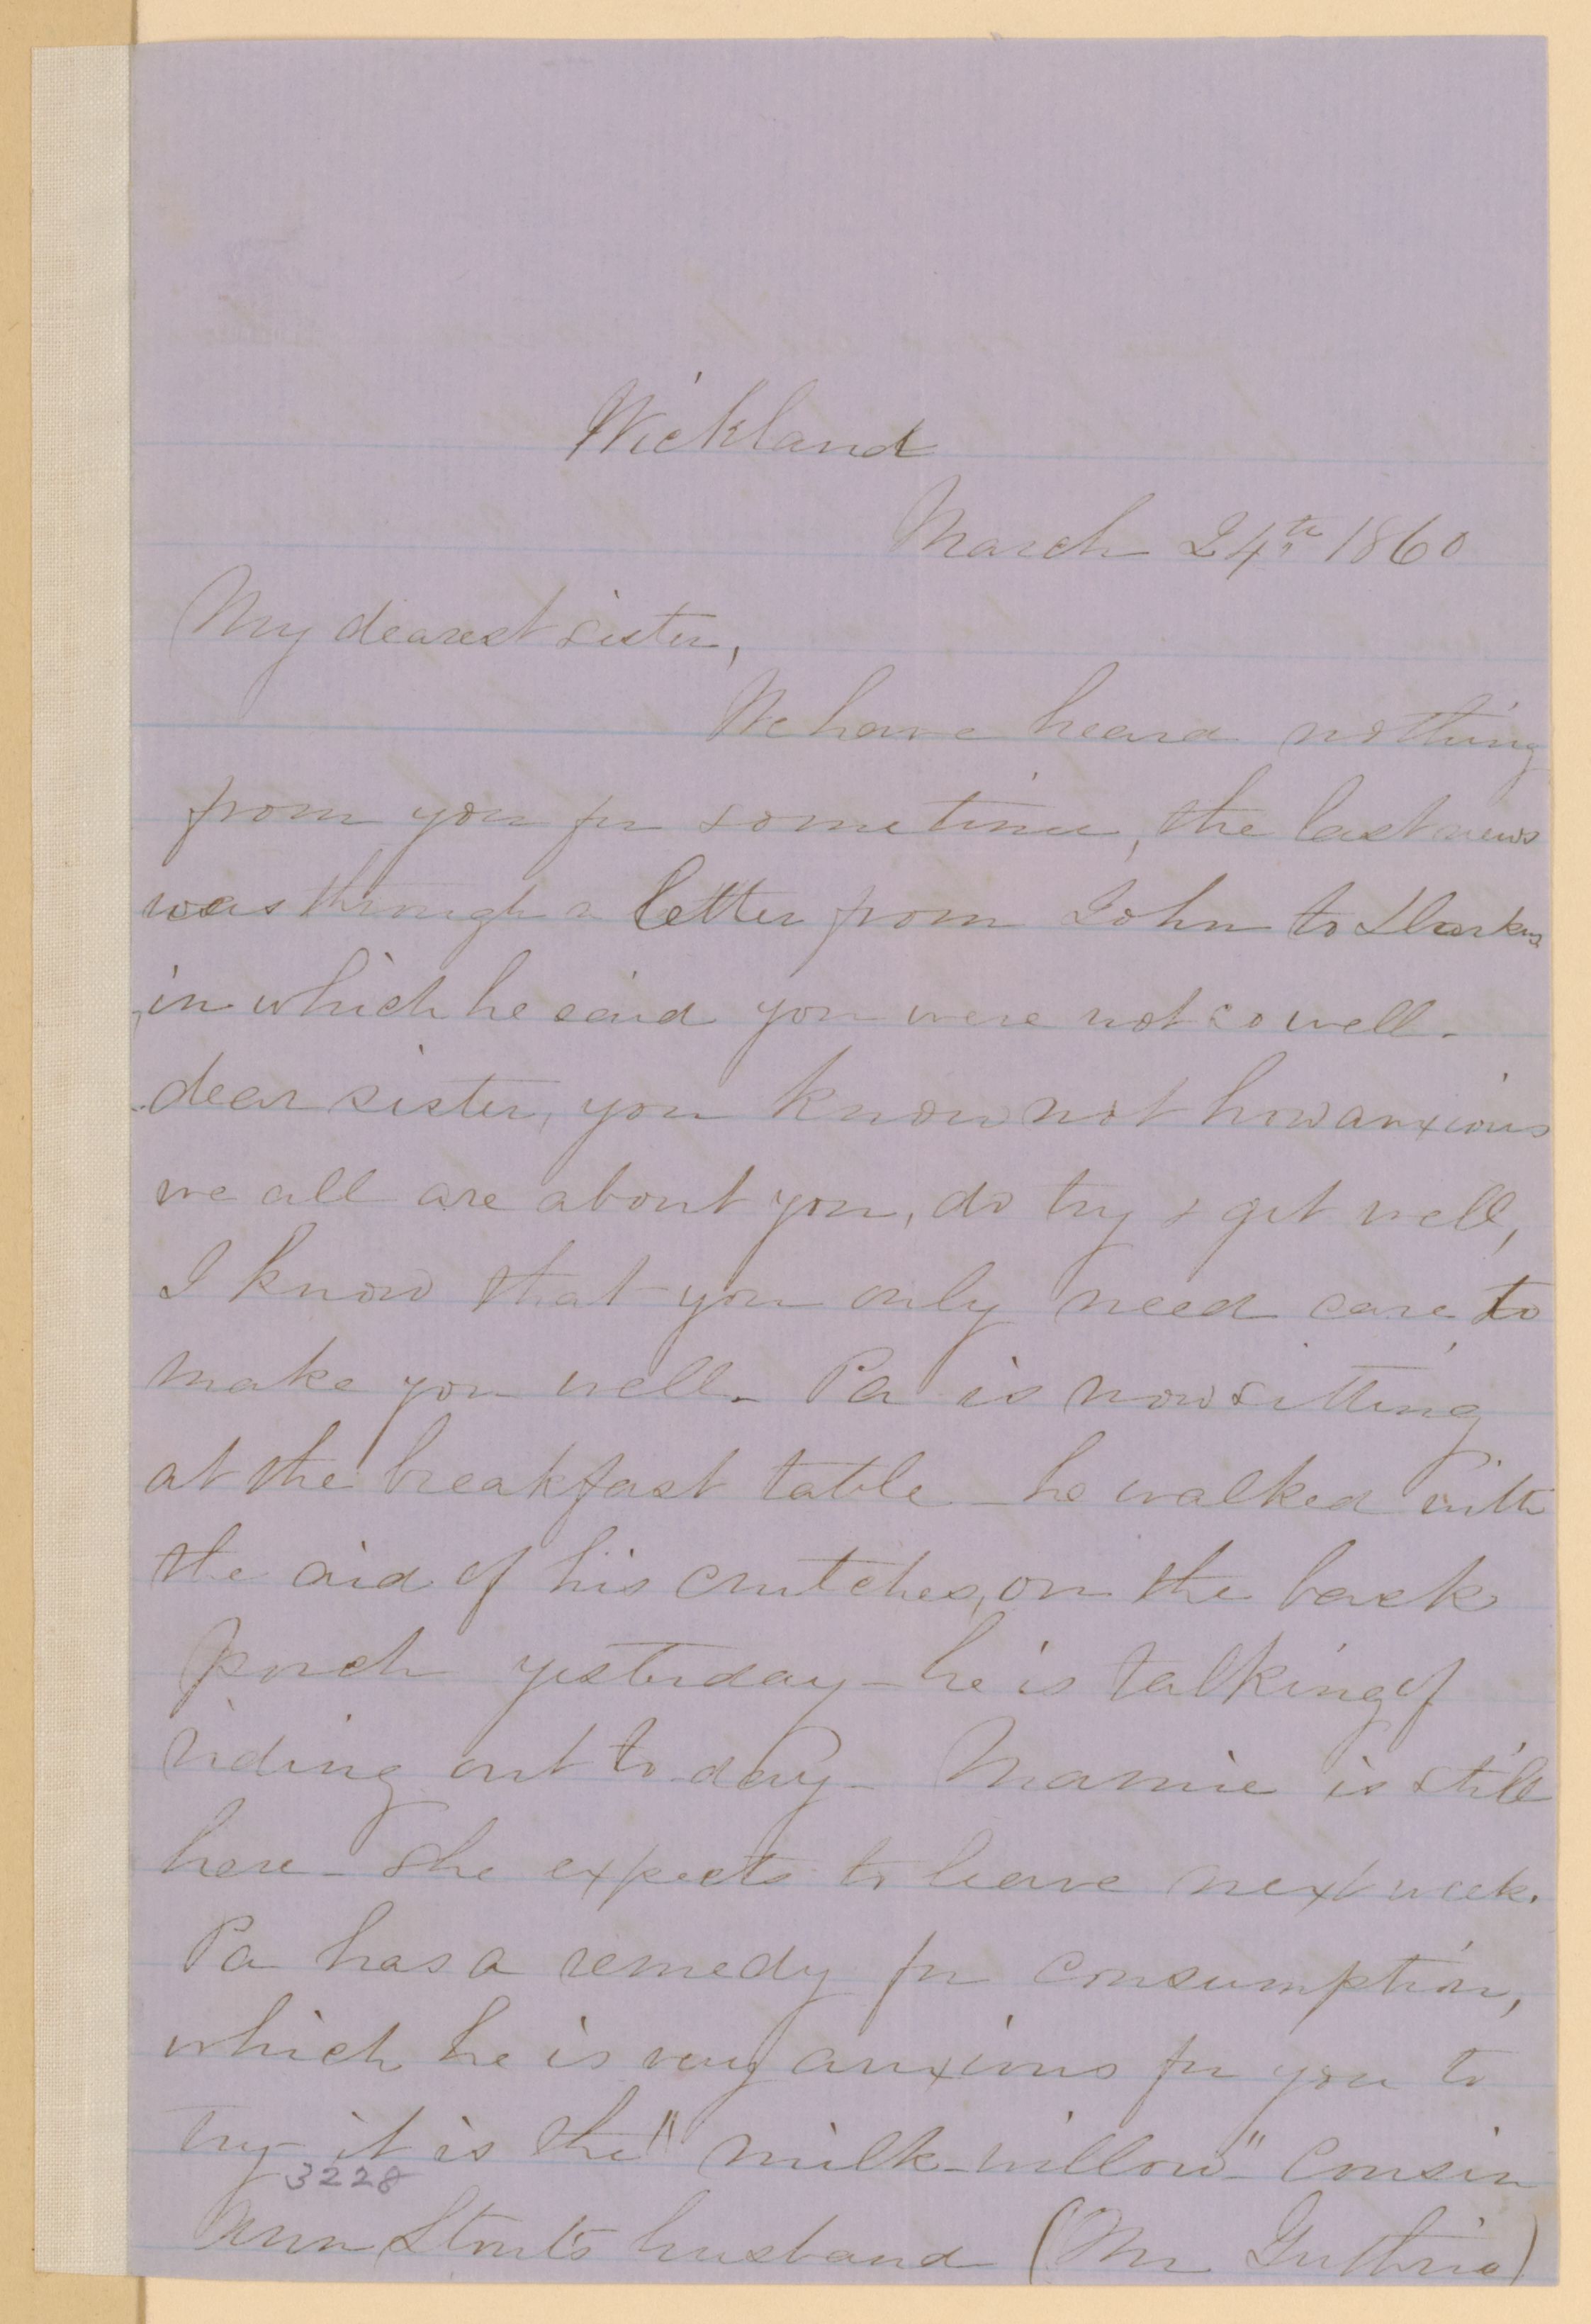 Wickland
March 24th 1860
My dearest sister,
We have heard nothing
from you for sometime, the last news
was through a letter from John to
in which he said you were not so well.
dear sister, you know not how anxious
we all are about you, do try & get well,
I know that you only need care to
make you well. Pa is now sitting
at the breakfast table - he walked with
the aid of his crutches, on the back
porch yesterday - he is talking of
riding out to day - Mamie is still
here - she expects to leave next week.
Pa has a remedy for consumption,
which he is very anxious for you to
try - it is the "milk-willow" cousin
3228
Ann Stouts husband (Mr Guthrie)